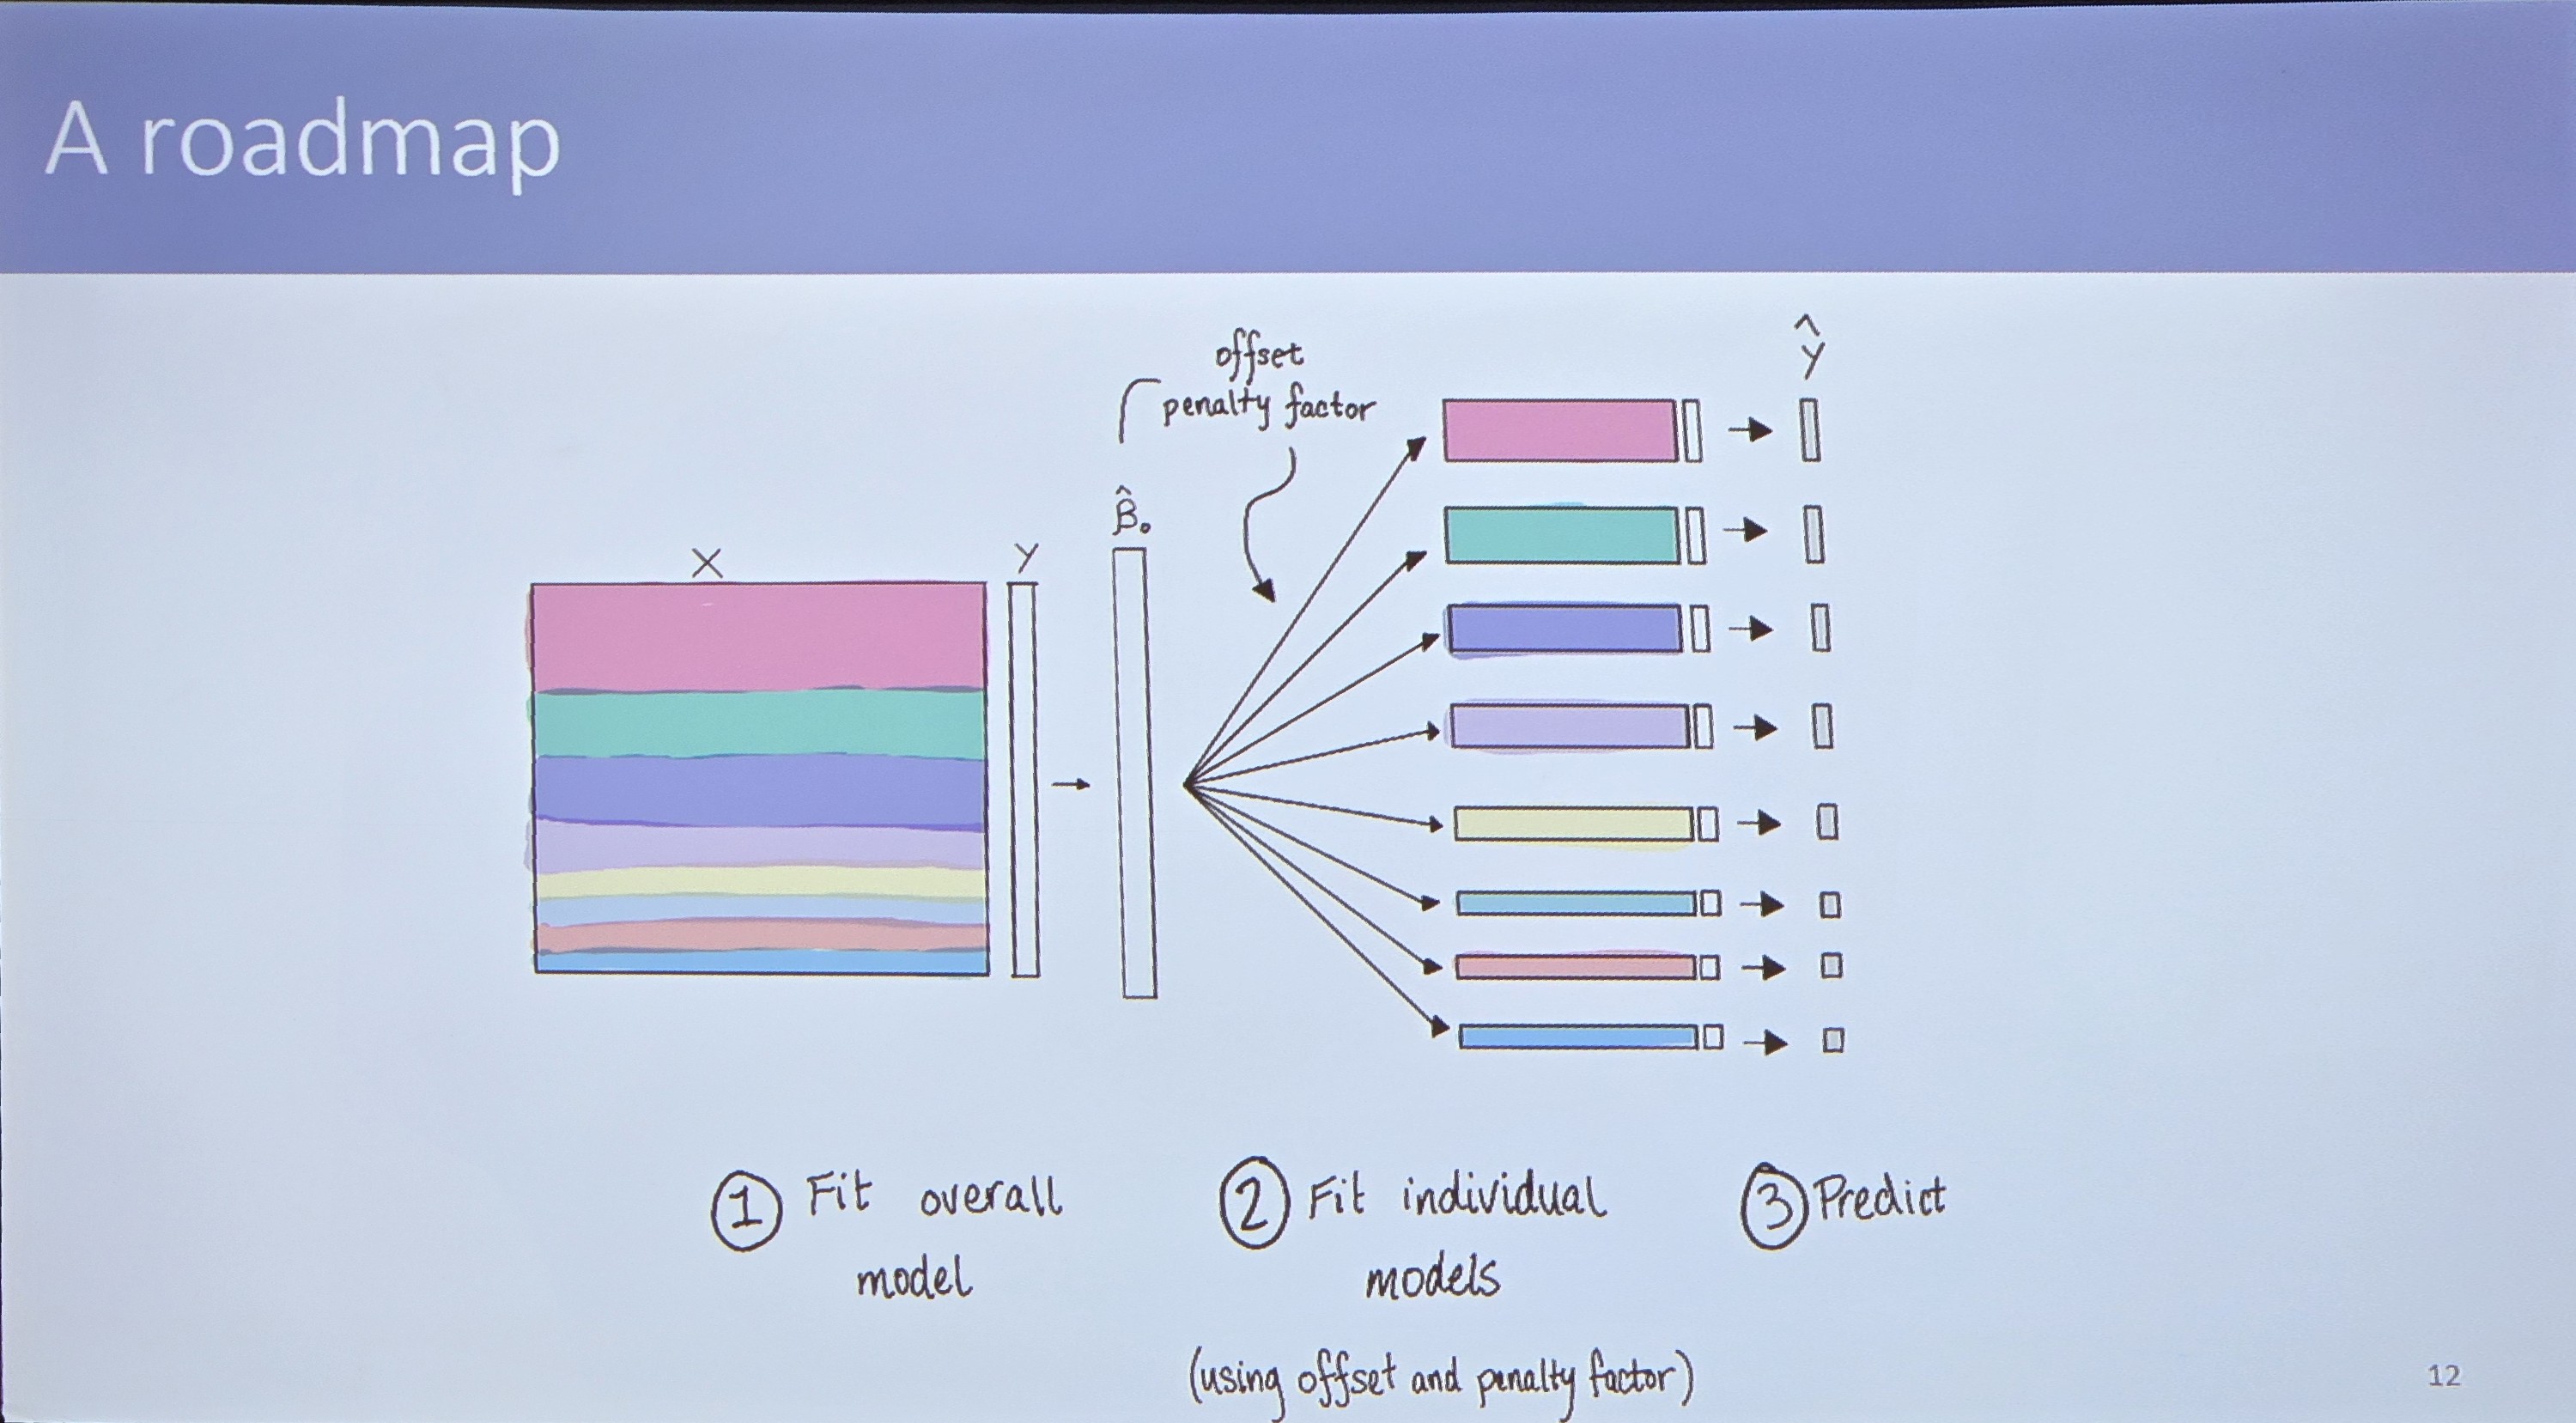 A roadmap
offset
penalty factor
ŷ
β̂₀
X
y
① Fit overall
model
② Fit individual
models
(using offset and penalty factor)
③ Predict
12